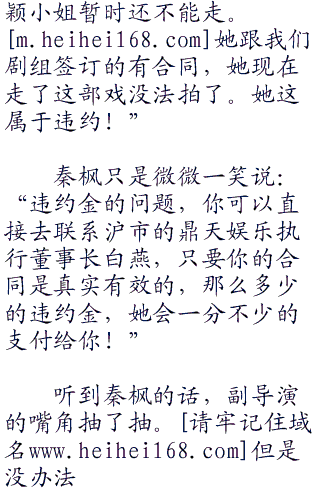 颖小姐暂时还不能走。
[m.heihei168.com]她跟我们
剧组签订的有合同，她现在
走了这部戏没法拍了。她这
属于违约！”
秦枫只是微微一笑说：
“违约金的问题，你可以直
接去联系沪市的鼎天娱乐执
行董事长白燕，只要你的合
同是真实有效的，那么多少
的违约金，她会一分不少的
支付给你！”
听到秦枫的话，副导演
的嘴角抽了抽。[请牢记住域
名www.heihei168.com]但是
没办法